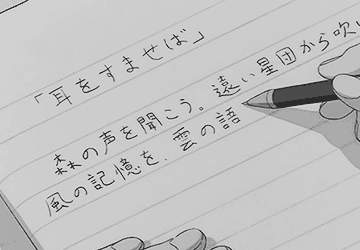 「耳をすませば」
森の声を聞こう。遠い星団から吹い
風の記憶を、雲の語